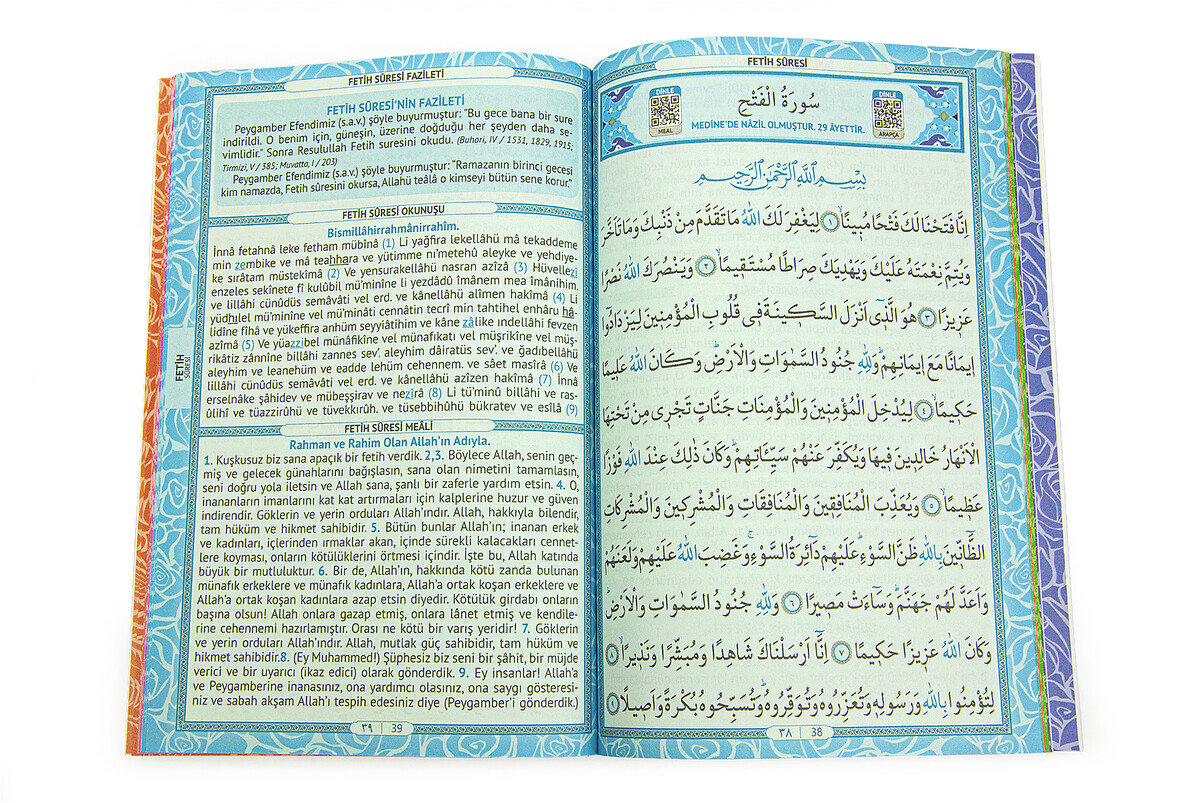 FETİH SÛRESİ
DİNLE
MEAL
سُورَةُ الْفَتْحِ
MEDİNE'DE NÂZİL OLMUŞTUR. 29 ÂYETTİR.
DİNLE
ARAPÇA
بِسْمِ اللّٰهِ الرَّحْمٰنِ الرَّحٖيمِ
اِنَّا فَتَحْنَا لَكَ فَتْحًا مُبٖينًاۙ ﴿١﴾ لِيَغْفِرَ لَكَ اللّٰهُ مَا تَقَدَّمَ مِنْ ذَنْبِكَ وَمَا تَاَخَّرَ
وَيُتِمَّ نِعْمَتَهُ عَلَيْكَ وَيَهْدِيَكَ صِرَاطًا مُسْتَقٖيمًاۙ ﴿٢﴾ وَيَنْصُرَكَ اللّٰهُ نَصْرًا
عَزٖيزًا ﴿٣﴾ هُوَ الَّذٖٓي اَنْزَلَ السَّكٖينَةَ فٖي قُلُوبِ الْمُؤْمِنٖينَ لِيَزْدَادُٓوا
اٖيمَانًا مَعَ اٖيمَانِهِمْؕ وَلِلّٰهِ جُنُودُ السَّمٰوَاتِ وَالْاَرْضِؕ وَكَانَ اللّٰهُ عَلٖيمًا
حَكٖيمًاۙ ﴿٤﴾ لِيُدْخِلَ الْمُؤْمِنٖينَ وَالْمُؤْمِنَاتِ جَنَّاتٍ تَجْرٖي مِنْ تَحْتِهَا
الْاَنْهَارُ خَالِدٖينَ فٖيهَا وَيُكَفِّرَ عَنْهُمْ سَيِّـَٔاتِهِمْؕ وَكَانَ ذٰلِكَ عِنْدَ اللّٰهِ فَوْزًا
عَظٖيمًاۙ ﴿٥﴾ وَيُعَذِّبَ الْمُنَافِقٖينَ وَالْمُنَافِقَاتِ وَالْمُشْرِكٖينَ وَالْمُشْرِكَاتِ
الظَّٓانّٖينَ بِاللّٰهِ ظَنَّ السَّوْءِؕ عَلَيْهِمْ دَٓائِرَةُ السَّوْءِۚ وَغَضِبَ اللّٰهُ عَلَيْهِمْ وَلَعَنَهُمْ
وَاَعَدَّ لَهُمْ جَهَنَّمَؕ وَسَٓاءَتْ مَصٖيرًا ﴿٦﴾ وَلِلّٰهِ جُنُودُ السَّمٰوَاتِ وَالْاَرْضِؕ
وَكَانَ اللّٰهُ عَزٖيزًا حَكٖيمًا ﴿٧﴾ اِنَّٓا اَرْسَلْنَاكَ شَاهِدًا وَمُبَشِّرًا وَنَذٖيرًاۙ ﴿٨﴾
لِتُؤْمِنُوا بِاللّٰهِ وَرَسُولِهٖ وَتُعَزِّرُوهُ وَتُوَقِّرُوهُؕ وَتُسَبِّحُوهُ بُكْرَةً وَاَصٖيلًا ﴿٩﴾
٣٨ | 38
FETİH SÛRESİ FAZİLETİ
FETİH SÛRESİ'NİN FAZİLETİ
Peygamber Efendimiz (s.a.v.) şöyle buyurmuştur: "Bu gece bana bir sure
indirildi. O benim için, güneşin, üzerine doğduğu her şeyden daha se-
vimlidir." Sonra Resulullah Fetih suresini okudu. (Buhari, IV / 1531, 1829, 1915;
Tirmizi, V / 385; Muvatta, I / 203)
Peygamber Efendimiz (s.a.v.) şöyle buyurmuştur: "Ramazanın birinci gecesi
kim namazda, Fetih sûresini okursa, Allahü teâlâ o kimseyi bütün sene korur."
FETİH SÛRESİ OKUNUŞU
Bismillâhirrahmânirrahîm.
İnnâ fetahnâ leke fetham mübînâ (1) Li yağfira lekellâhü mâ tekaddeme
min zembike ve mâ teahhara ve yütimme nı'metehû aleyke ve yehdiye-
ke sırâtam müstekîmâ (2) Ve yensurakellâhü nasran azîzâ (3) Hüvellezî
enzeles sekînete fî kulûbil mü'minîne li yezdâdû îmânem mea îmânihim.
ve lillâhi cünûdüs semâvâti vel erd. ve kânellahü alîmen hakîmâ (4) Li
yüdhilel mü'minîne vel mü'minâti cennâtin tecrî min tahtihel enhâru hâ-
lidîne fîhâ ve yükeffira anhüm seyyiâtihim ve kâne zâlike ındellâhi fevzen
azîmâ (5) Ve yüazzibel münâfikîne vel münafikatı vel müşrikîne vel müş-
rikâtiz zânnîne billâhi zannes sev'. aleyhim dâiratüs sev'. ve ğadıbellâhü
aleyhim ve leanehüm ve eadde lehüm cehennem. ve sâet masîrâ (6) Ve
lillâhi cünûdüs semâvâti vel erd. ve kânellahü azîzen hakîmâ (7) İnnâ
erselnâke şâhidev ve mübeşşirav ve nezîrâ (8) Li tü'minû billâhi ve ras-
ûlihî ve tüazzirûhü ve tüvekkırûh. ve tüsebbihûhü bükratev ve esîlâ (9)
FETİH
SÛRESİ
FETİH SÛRESİ MEÂLİ
Rahman ve Rahim Olan Allah'ın Adıyla.
1. Kuşkusuz biz sana apaçık bir fetih verdik. 2,3. Böylece Allah, senin geç-
miş ve gelecek günahlarını bağışlasın, sana olan nimetini tamamlasın,
seni doğru yola iletsin ve Allah sana, şanlı bir zaferle yardım etsin. 4. O,
inananların imanlarını kat kat artırmaları için kalplerine huzur ve güven
indirendir. Göklerin ve yerin orduları Allah'ındır. Allah, hakkıyla bilendir,
tam hüküm ve hikmet sahibidir. 5. Bütün bunlar Allah'ın; inanan erkek
ve kadınları, içlerinden ırmaklar akan, içinde sürekli kalacakları cennet-
lere koyması, onların kötülüklerini örtmesi içindir. İşte bu, Allah katında
büyük bir mutluluktur. 6. Bir de, Allah'ın, hakkında kötü zanda bulunan
münafık erkeklere ve münafık kadınlara, Allah'a ortak koşan erkeklere ve
Allah'a ortak koşan kadınlara azap etsin diyedir. Kötülük girdabı onların
başına olsun! Allah onlara gazap etmiş, onlara lânet etmiş ve kendile-
rine cehennemi hazırlamıştır. Orası ne kötü bir varış yeridir! 7. Göklerin
ve yerin orduları Allah'ındır. Allah, mutlak güç sahibidir, tam hüküm ve
hikmet sahibidir.8. (Ey Muhammed!) Şüphesiz biz seni bir şâhit, bir müjde
verici ve bir uyarıcı (ikaz edici) olarak gönderdik. 9. Ey insanlar! Allah'a
ve Peygamberine inanasınız, ona yardımcı olasınız, ona saygı gösteresi-
niz ve sabah akşam Allah'ı tespih edesiniz diye (Peygamber'i gönderdik.)
٣٩ | 39